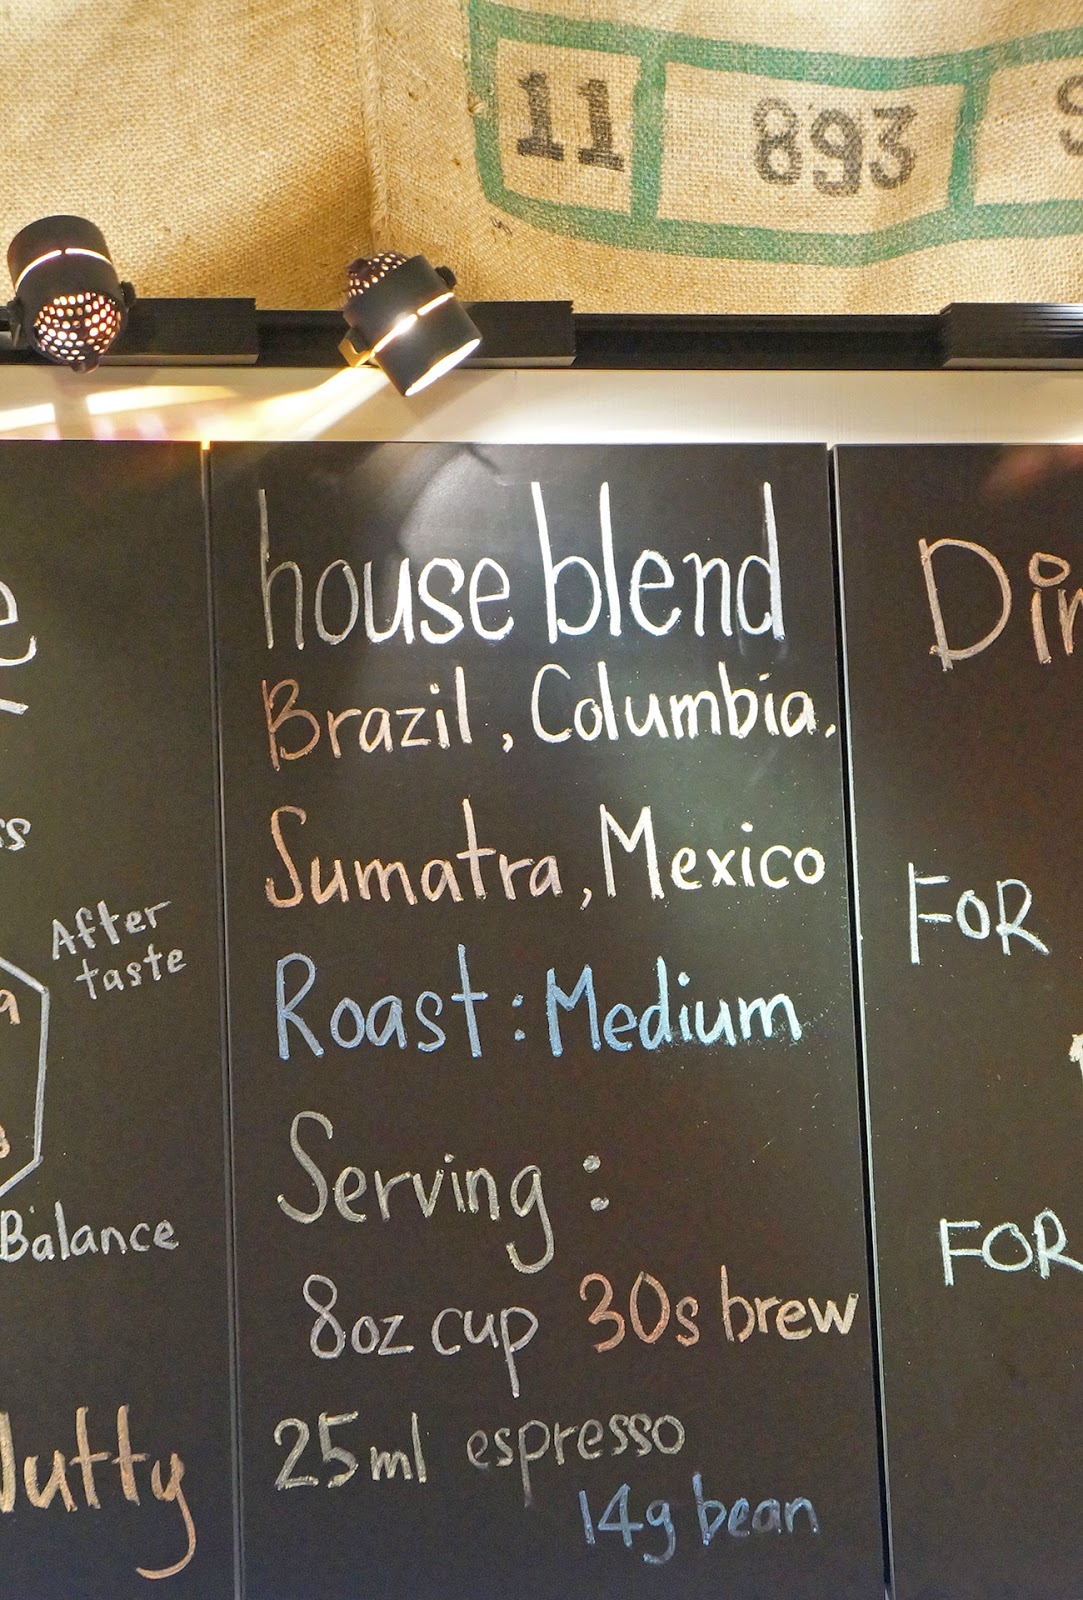 11 893
house blend
Brazil, Columbia.
Sumatra, Mexico
Roast: Medium
Serving:
8oz cup 30s brew
25ml espresso
14g bean
After
taste
Balance
FOR
FOR